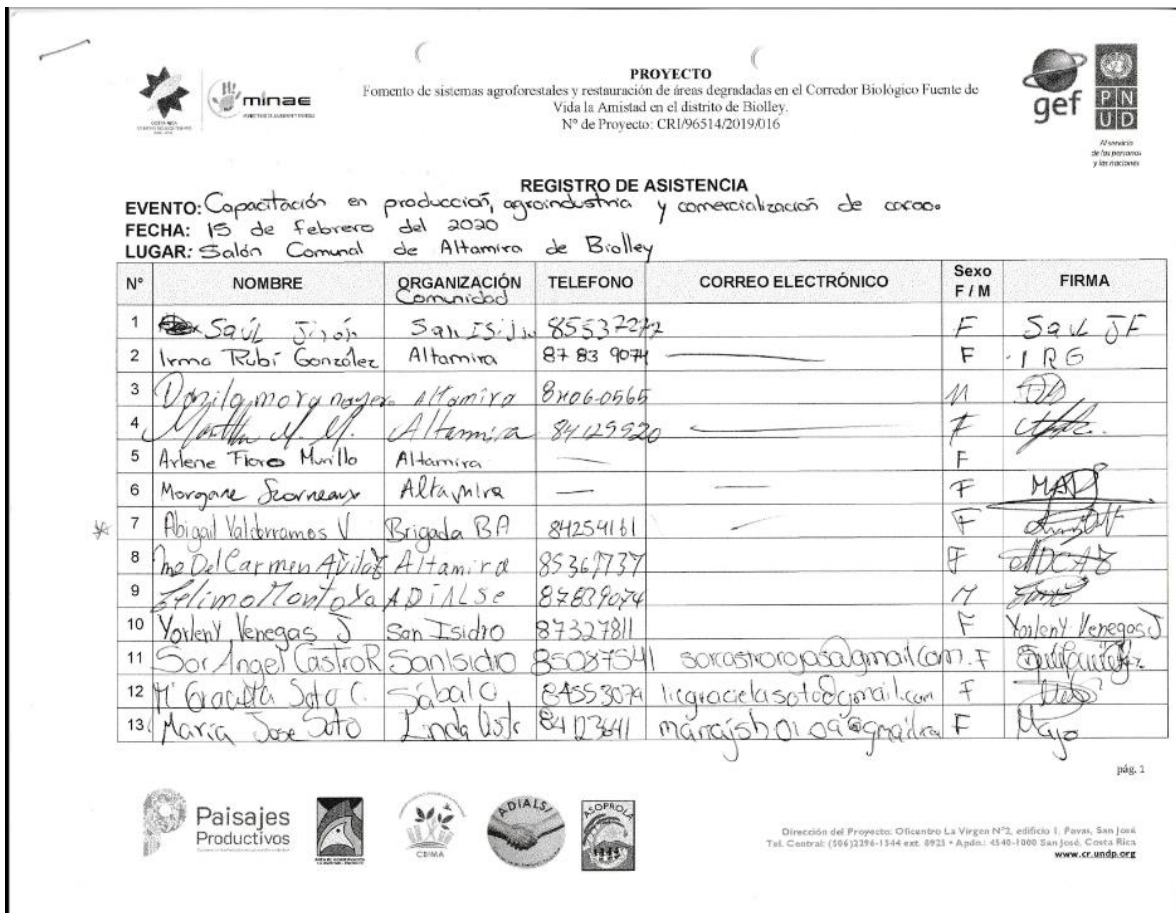 PROYECTO
Fomento de sistemas agroforestales y restauración de áreas degradadas en el Corredor Biológico Fuente de
Vida la Amistad en el distrito de Biolley.
Nº de Proyecto: CRI/96514/2019/016
minae
gef
PN
UD
Al servicio
de las personas
y las naciones
REGISTRO DE ASISTENCIA
EVENTO: Capacitación en producción, agroindustria y comercialización de cacao.
FECHA: 15 de febrero del 2020
LUGAR: Salón Comunal de Altamira de Biolley
Nº NOMBRE ORGANIZACIÓN Comunidad TELEFONO CORREO ELECTRÓNICO Sexo F / M FIRMA
1 Saúl Jirón San Isidro 85537272 F Saul JF
2 Irma Rubí González Altamira 87 83 9074 F IRG
3 Danilo mora Altamira M
4 Altamira 84129920 F
5 Arlene Flores Murillo Altamira F
6 Morgane Altamira F
7 Abigail Valderramos V Brigada BA 84254161 F
8 Ma Del Carmen Altamira 85369737 F
9 Zelimo Montoya ADIALSE 87839074 M
10 Yorleny Venegas J San Isidro 87327811 F Yorleny Venegas J
11 Sor Angel Castro R San Isidro 85087541 sorcastrorojas@gmail.com. F
12 Mª Graciela Soto C. Sábalo 84553079 licgracielasoto@gmail.com F
13 María Jose Soto Linda 84123641 F Majo
pág. 1
Paisajes
Productivos
CBIMA
ADIALS
ASOPROLA
Dirección del Proyecto: Oficentro La Virgen Nº2, edificio 1, Pavas, San José
Tel. Central: (506)2296-1544 ext. 8925 • Apdo.: 4540-1000 San José, Costa Rica
www.cr.undp.org